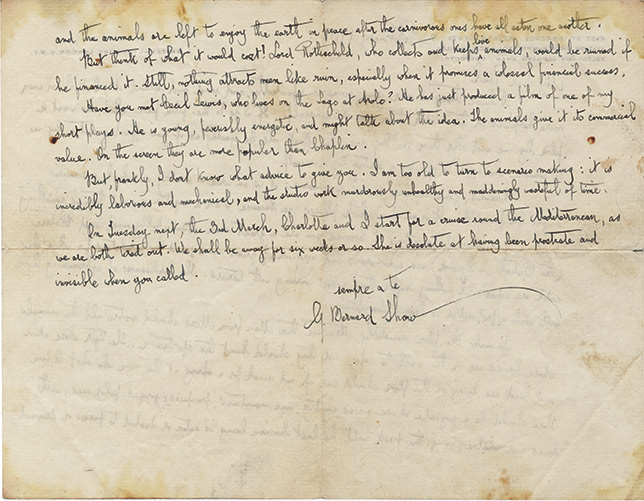 and the animals are left to enjoy the earth in peace after the carnivorous ones have all eaten one another.
But think of what it would cost! Lord Rothschild, who collects and keeps live animals, would be ruined if
he financed it. Still, nothing attracts men like ruin, especially when it promises a colossal financial success.
Have you met Cecil Lewis, who lives on the Lago at Arolo? He has just produced a film of one of my
short plays. He is young, passably energetic, and might talk about the idea. The animals give it its commercial
value. On the screen they are more popular than Chaplin.
But, frankly, I dont know what advice to give you. I am too old to turn to scenario making: it is
incredibly laborious and mechanical, and the studio work murderously unhealthy and maddeningly wasteful of time.
On Tuesday next, the 3rd March, Charlotte and I start for a cruise round the Mediterranean, as
we are both tired out. We shall be away for six weeks or so. She is desolate at having been prostrate and
invisible when you called.
sempre a te
G. Bernard Shaw